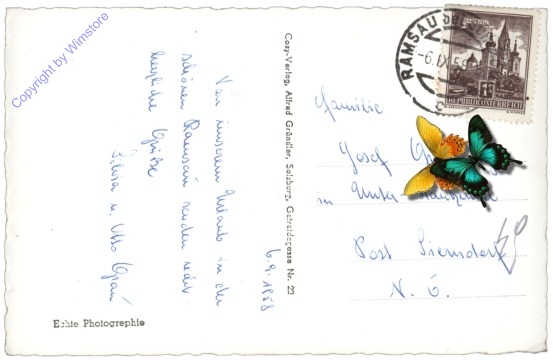 Copyright by Wimstore
6.9.1958
Von unserem Urlaub in der
schönen Ramsau senden recht
herzliche Grüße
u. Otto
Echte Photographie
Cosy-Verlag, Alfred Gründler, Salzburg, Getreidegasse Nr. 22
RAMSAU
-6.IX.58
REPUBLIK ÖSTERREICH
Familie
Josef
in Unter-
Post Sierndorf
N. Ö.